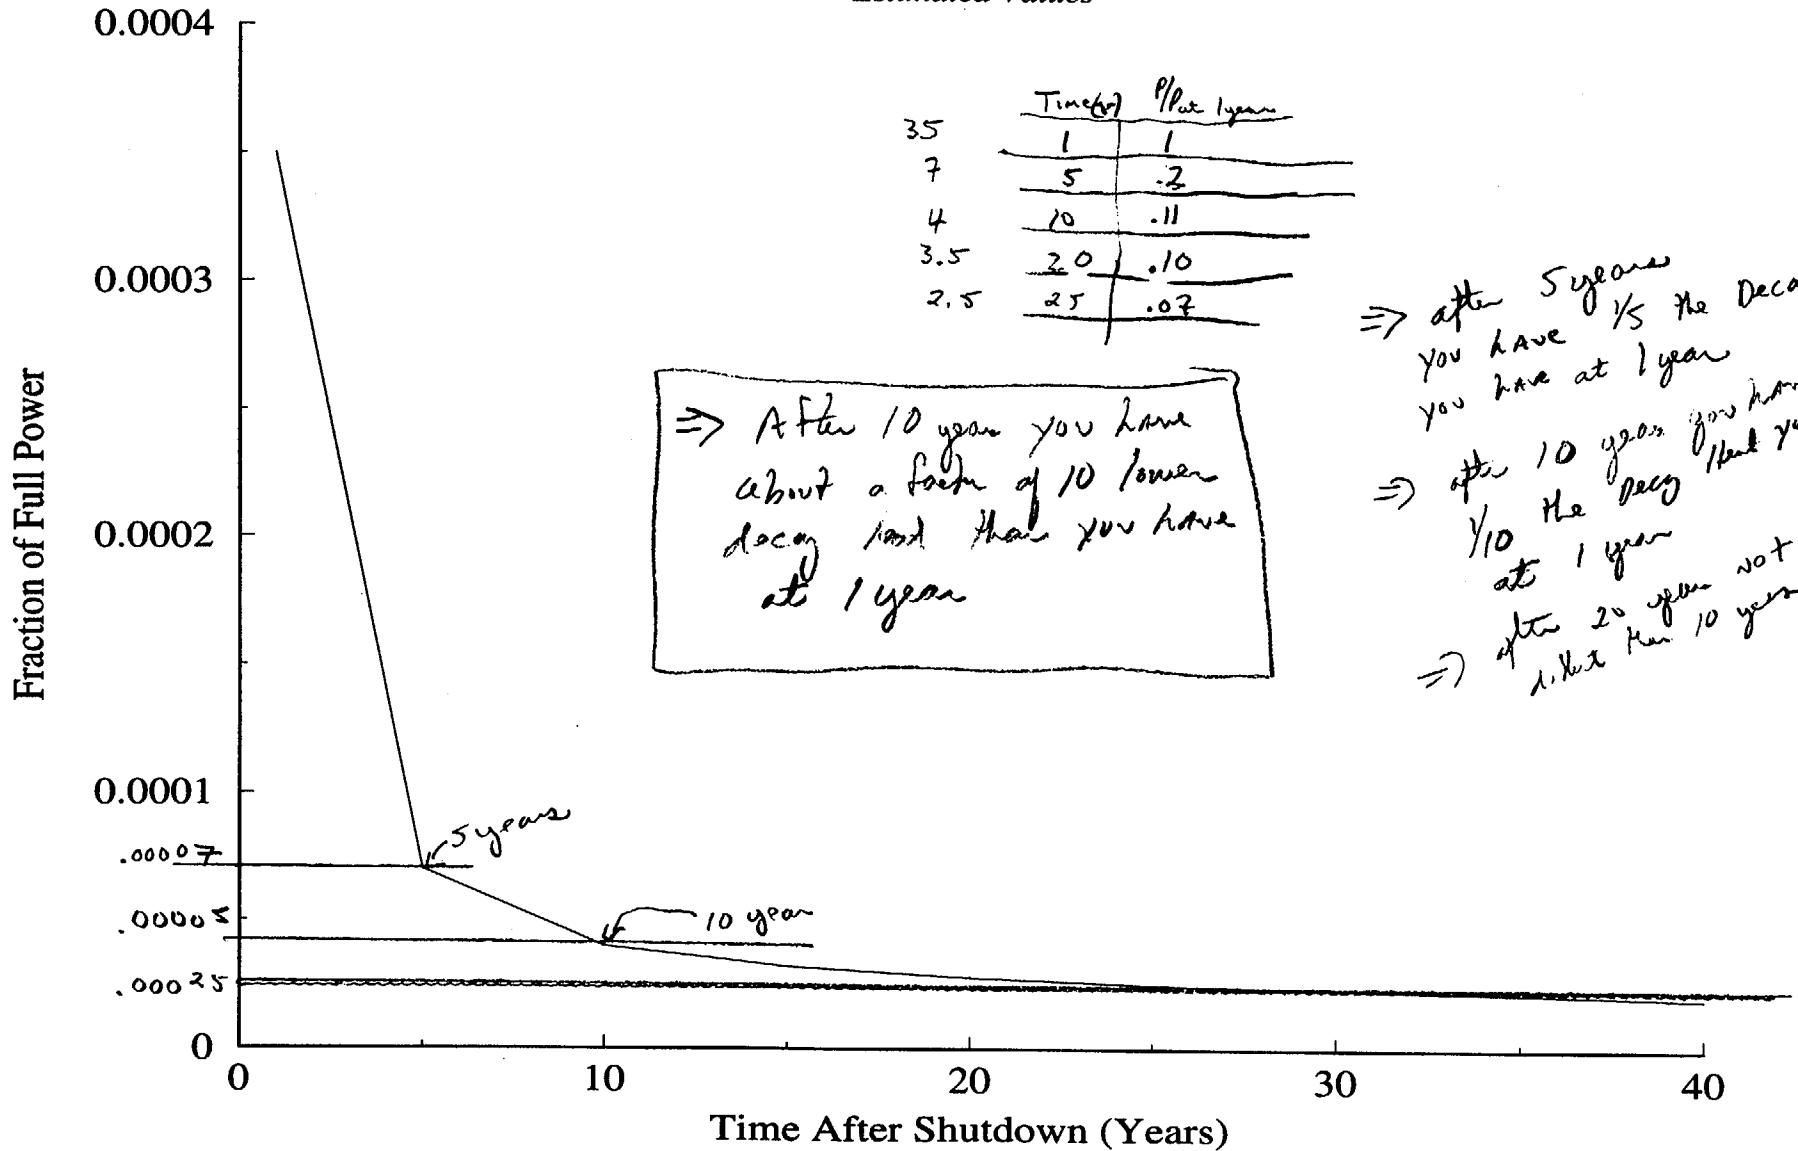 Estimated Values
0.0004
0.0003
0.0002
0.0001
0
Fraction of Full Power
Time(yr) P/Pat 1year
35 1 1
7 5 .2
4 10 .11
3.5 20 .10
2.5 25 .07
⇒ After 10 year you have
about a factor of 10 lower
decay load than you have
at 1 year
⇒ after 5 years
you have 1/5 the Deca
you have at 1 year
⇒ after 10 years you hav
1/10 the Decay
at 1 year
⇒ after 20 year not
than 10 years
5 years
10 year
.00007
.00025
0 10 20 30 40
Time After Shutdown (Years)